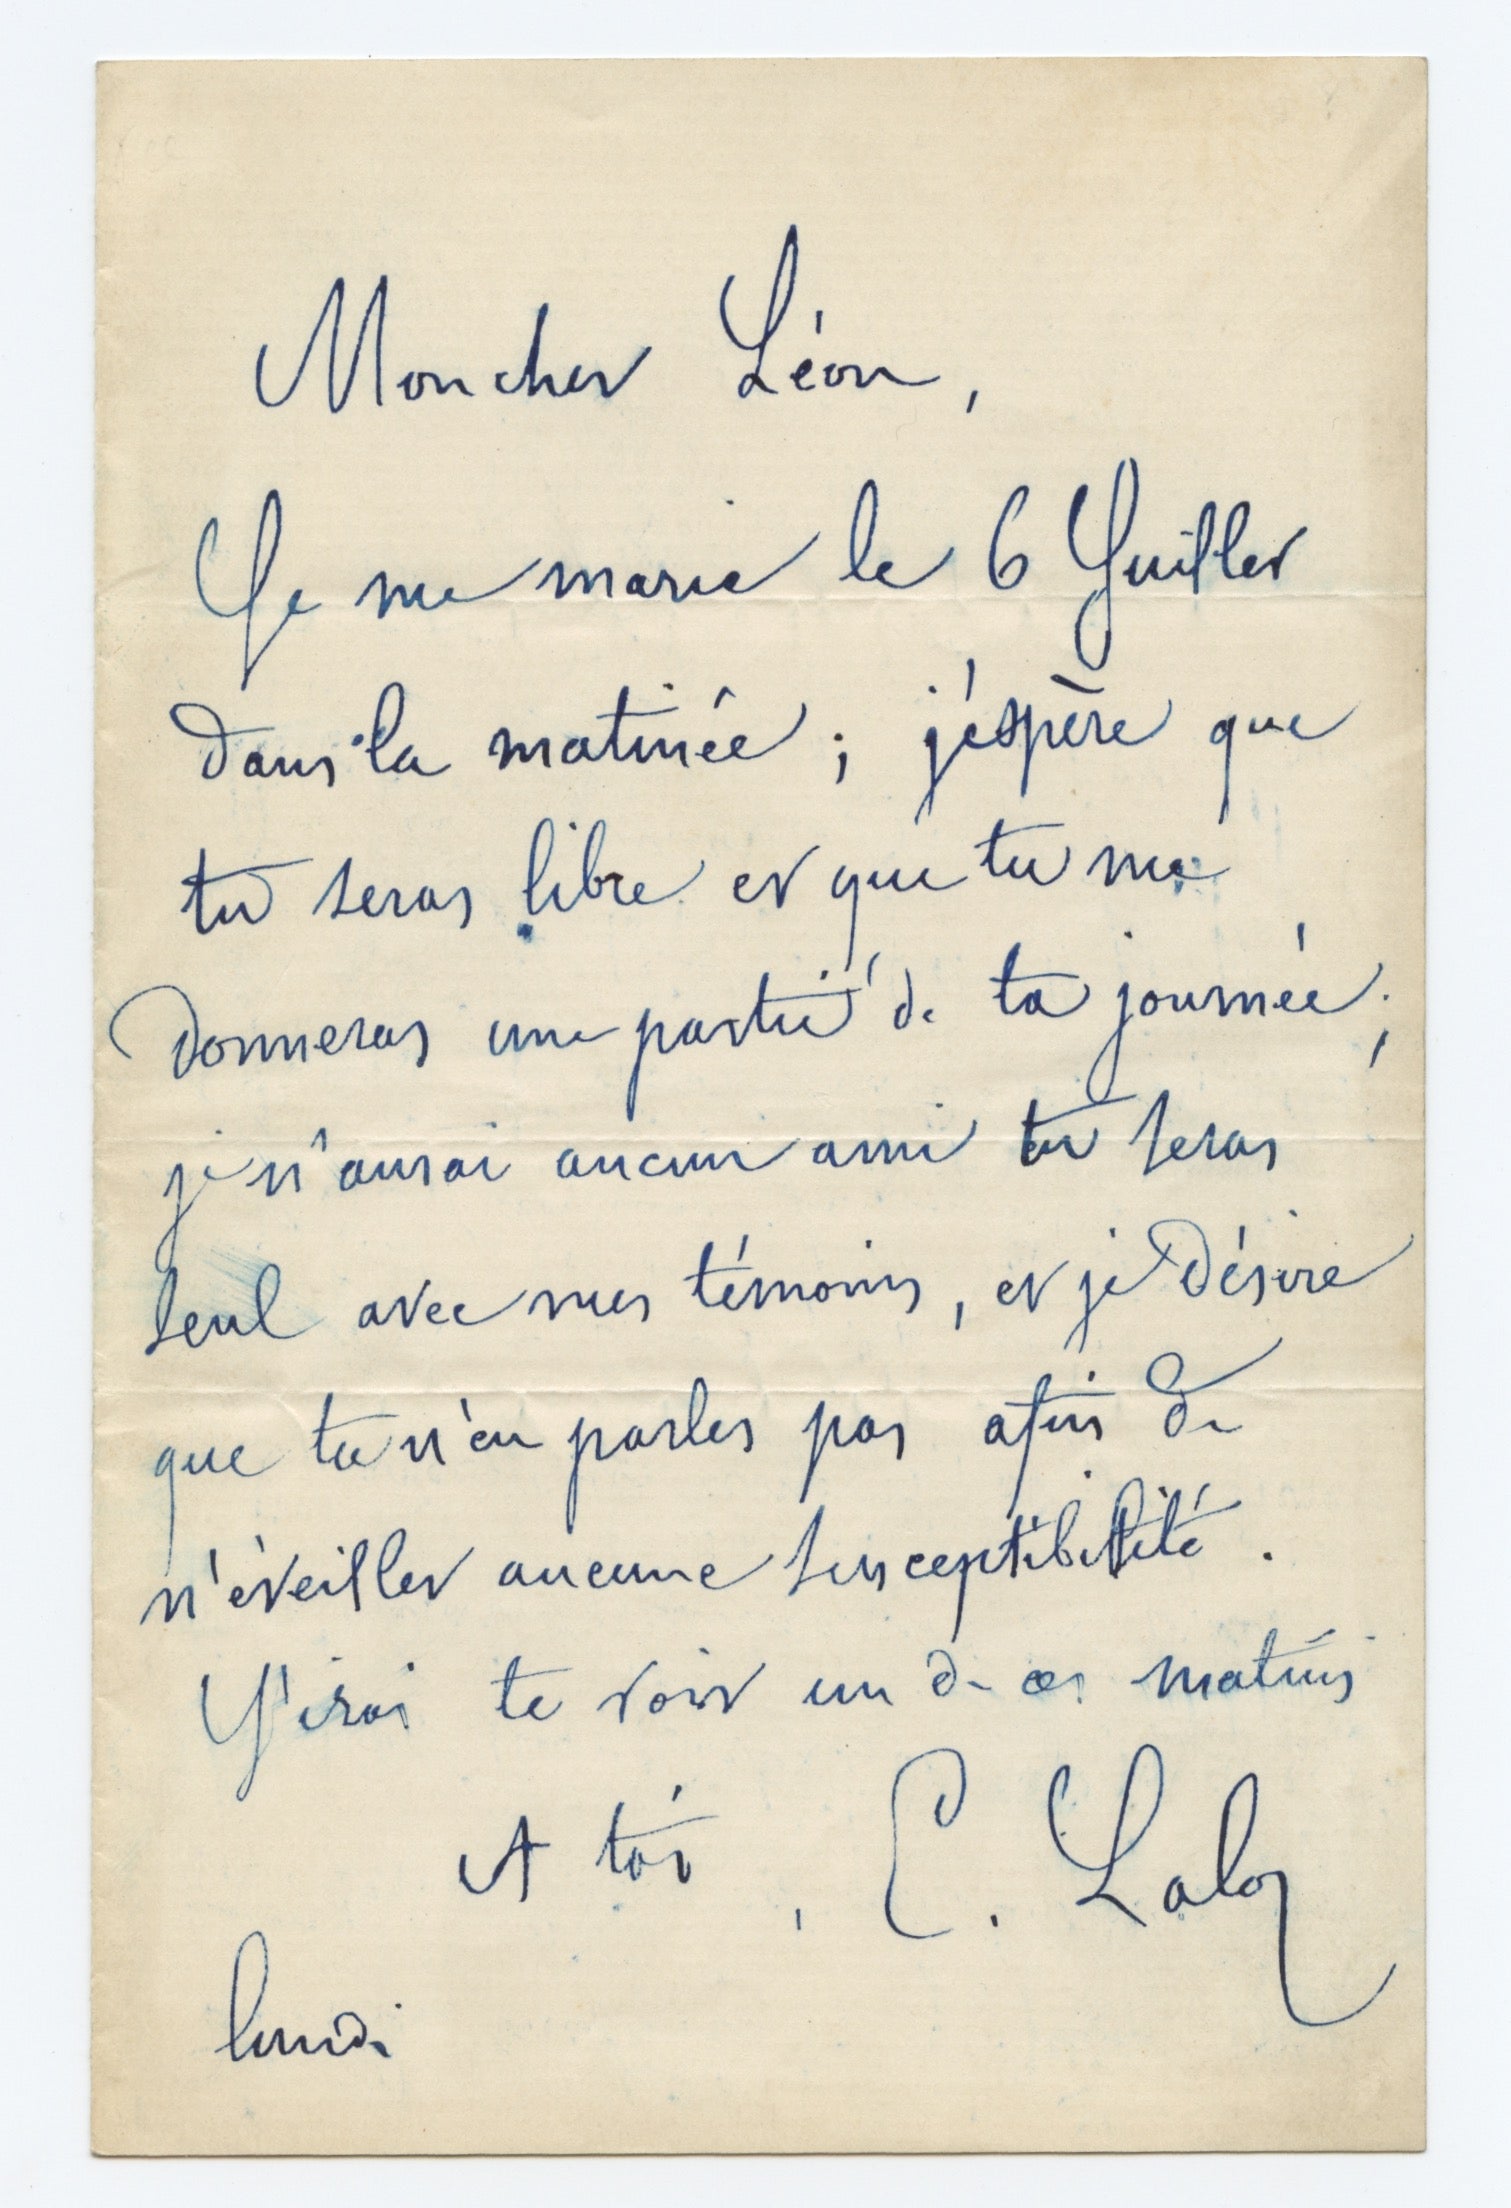 Mon cher Léon,
Je me marie le 6 Juillet
dans la matinée ; j'éspère que
tu seras libre et que tu me
donneras une partie de ta journée ;
je n'aurai aucun ami tu seras
seul avec mes témoins, et je désire
que tu n'en parles pas afin de
n'éveiller aucune susceptibilité.
J'irai te voir un de ces matins
A toi, E. Lalo
lundi